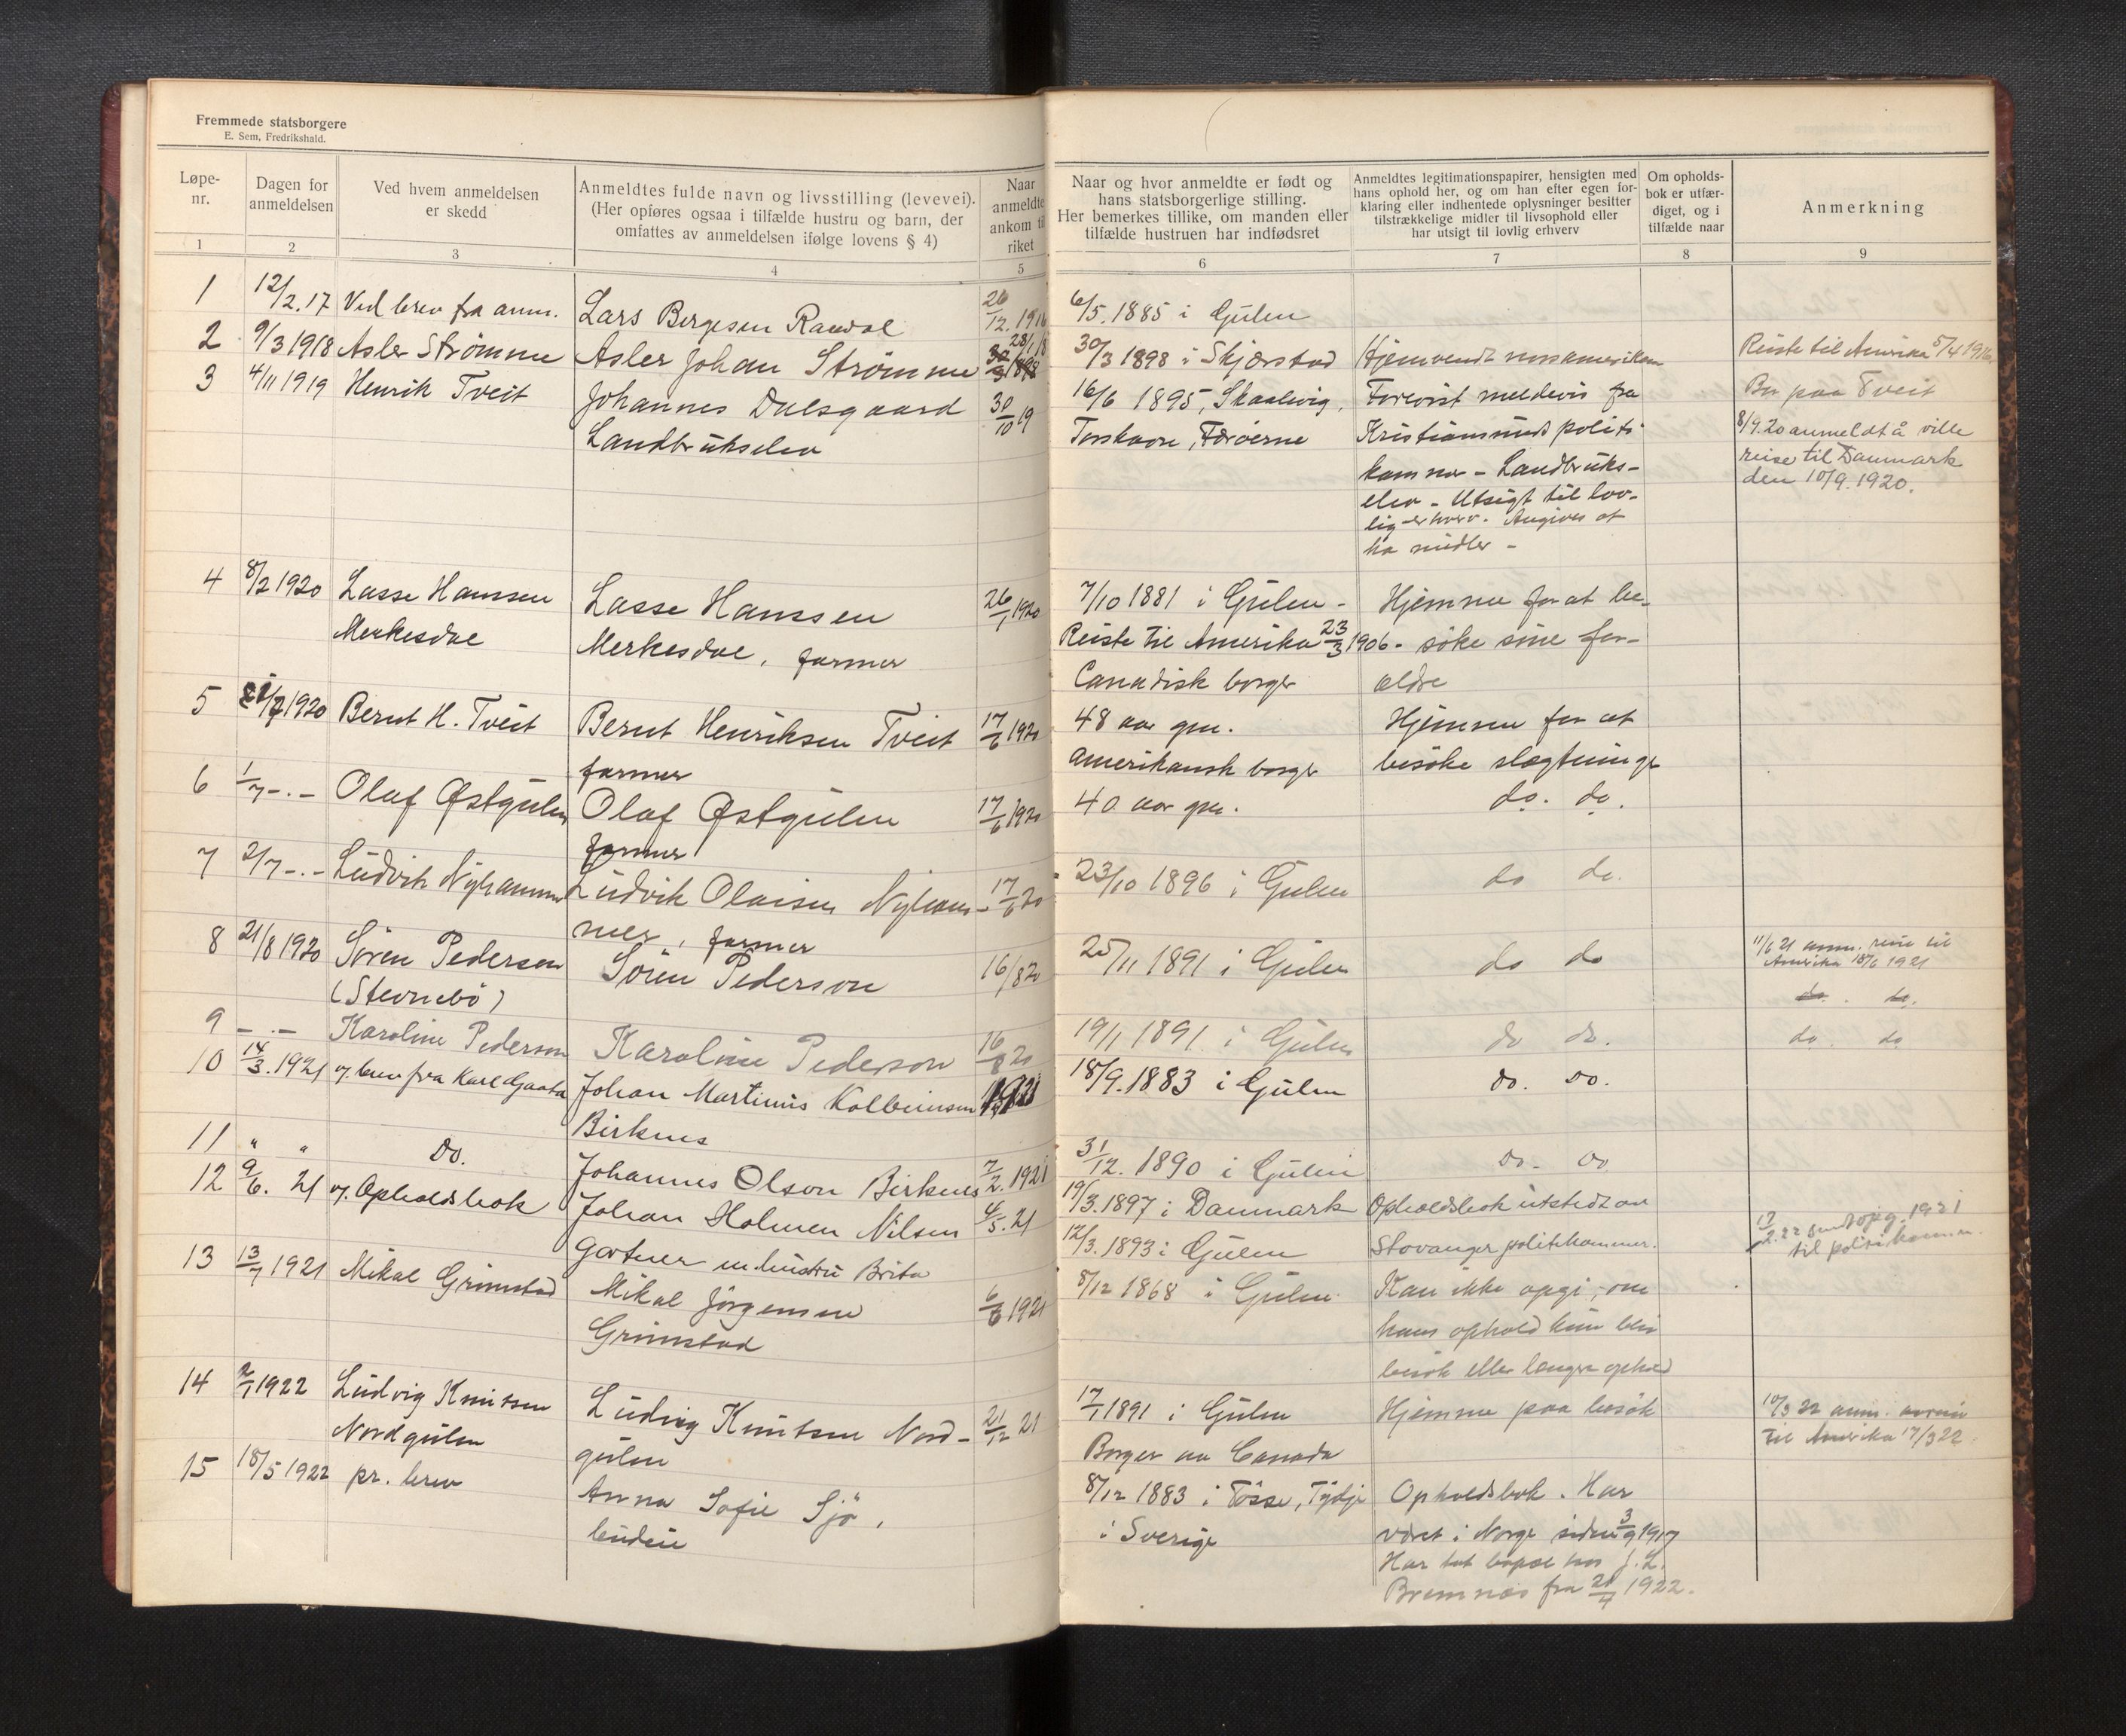 Fremmede statsborgere
E. Sem, Fredrikshald.
Løpe-
nr.
Dagen for
anmeldelsen
Ved hvem anmeldelsen
er skedd
Anmeldtes fulde navn og livsstilling (levevei).
(Her opføres ogsaa i tilfælde hustru og barn, der
omfattes av anmeldelsen ifølge lovens § 4)
Naar
anmeldte
ankom til
riket
Naar og hvor anmeldte er født og
hans statsborgerlige stilling.
Her bemerkes tillike, om manden eller
tilfælde hustruen har indfødsret
Anmeldtes legitimationspapirer, hensigten med
hans ophold her, og om han efter egen for-
klaring eller indhentede oplysninger besitter
tilstrækkelige midler til livsophold eller
har utsigt til lovlig erhverv
Om opholds-
bok er utfær-
diget, og i
tilfælde naar
Anmerkning
1 2 3 4 5 6 7 8 9
1 12/2.17 Ved brev fra anm. Lars Bergesen Randal 26/12.1916 6/5.1885 i Gulen
2 9/3 1918 Asler Strømme Asler Johan Strømme 23/1 18 30/3 1898 i Skjerstad Hjemvendt norskamerikan Reiste til Amerika 5/4 1918
3 4/11 1919 Henrik Tveit Johannes Dalsgaard 30/10 19 16/6 1895, Skaalevig, Forevist meldevis fra Bor paa Tveit
Landbrukselev Torshavn, Færøerne Kristiansunds politi- 8/9.20 anmeldt å ville
kammer - Landbruks- reise til Danmark
elev - Utsigt til lov- den 10/9.1920.
lig erhverv. Angives at
ha midler -
4 8/2 1920 Lasse Hanssen Lasse Hanssen 26/1 1920 7/10 1881 i Gulen - Hjemme for at be-
Merkesdal Merkesdal, farmer Reiste til Amerika 23/3 1906 - søke sine for-
Canadisk borger ældre
5 21/7 1920 Bernt H. Tveit Bernt Henriksen Tveit 17/6 1920 48 aar gm. Hjemme for at
farmer amerikansk borger besøke slegtninge
6 1/7 -.- Olaf Østgulen Olaf Østgulen 17/6 1920 40 aar gm. do. do.
farmer
7 2/7 -.- Ludvik Nyhammer Ludvik Olaisen Nyham- 17/6 20 23/10 1896 i Gulen do do.
mer, farmer
8 21/8 1920 Søren Pedersen Søren Pederson 16/8 20 25/11 1891 i Gulen do do 11/6 21 anm. reise til
(Stevnebø) Amerika 18/6 1921
do. do.
9 -.- Karoline Pederson Karoline Pederson 16/8 20 19/1 1891 i Gulen do do. do. do
10 14/3.1921 v. brev fra Karl Gaasta Johan Martinus Kolbeinsen 1921 18/9.1883 i Gulen do. do.
Birknes
11 " " Do. Johannes Olson Birknes 7/2.1921 31/12.1890 i Gulen do. do
12 9/6. 21 v. Opholdsbok Johan Holmen Nilsen 4/5.21 19/3.1897 i Danmark Opholdsbok utstedt av
Gartner m. hustru Brita 12/3.1893 i Gulen Stavanger politikammer. 17/2.22 sendt opg. 1921
til politikamm.
13 13/7 1921 Mikal Grimstad Mikal Jørgensen 6/6 1921 8/12 1868 i Gulen Kan ikke opgi, om
Grimstad hans ophold kun blir
besøk eller længer ophold
14 2/1 1922 Ludvig Knutsen Ludvig Knutsen Nord- 21/12 21 17/1 1891 i Gulen Hjemme paa besøk 10/3 22 anm. avreise
Nordgulen gulen Borger av Canada til Amerika 17/3 22.
15 18/5 1922 pr. brev Anna Sofie Sjö, 8/12 1883 i Tösse, Tydje Opholdsbok. Har
budeie i Sverige været i Norge siden 3/9 1917
Har tat bopæl hos J. L.
Bremnes fra 21/4 1922.